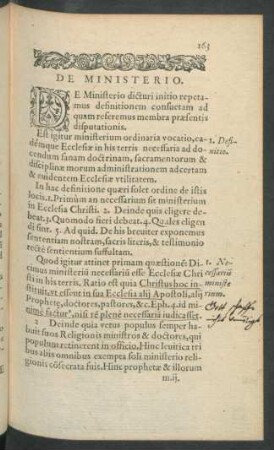 163
DE MINISTERIO.
DE Ministerio dicturi initio repeta-
mus definitionem consuetam ad
quam referemus membra præsentis
disputationis.
Est igitur ministerium ordinaria vocatio, ea-
démque Ecclesiæ in his terris necessaria ad do-
cendum sanam doctrinam, sacramentorum &
disciplinæ morum administrationem ad certam
& euidentem Ecclesiæ vtilitatem.
1. Defi-
nitio.
In hac definitione quæri solet ordine de istis
locis. 1. Primùm an necessarium sit ministerium
in Ecclesia Christi. 2. Deinde quis eligere de-
beat. 3. Quomodo fieri debeat. 4. Quales eligen
di sint. 5. Ad quid. De his breuiter exponemus
sententiam nostram, sacris literis, & testimonio
rectè sentientium suffultam.
Quod igitur attinet primam quæstionē Di-
cimus ministerii necessariū esse Ecclesiæ Chri
sti in his terris, Ratio est quia Christus hoc in-
stituit, et essent in sua Ecclesia alij Apostoli, alij
Prophetę, doctores, pastores, &c. Eph. 4. id mi-
nimè factur°, nisi rē planè necessariā iudicasset.
1. Ne-
cessariū
ministe
rium.
2 Deinde quia vetus populus semper ha-
buit suos Religionis ministros & doctores, qui
populum retinerent in officio. Hinc leuitica tri
bus aliis omnibus exempta soli ministerio reli-
gionis cōsecrata fuit. Hinc prophetæ & illorum
m.ij.